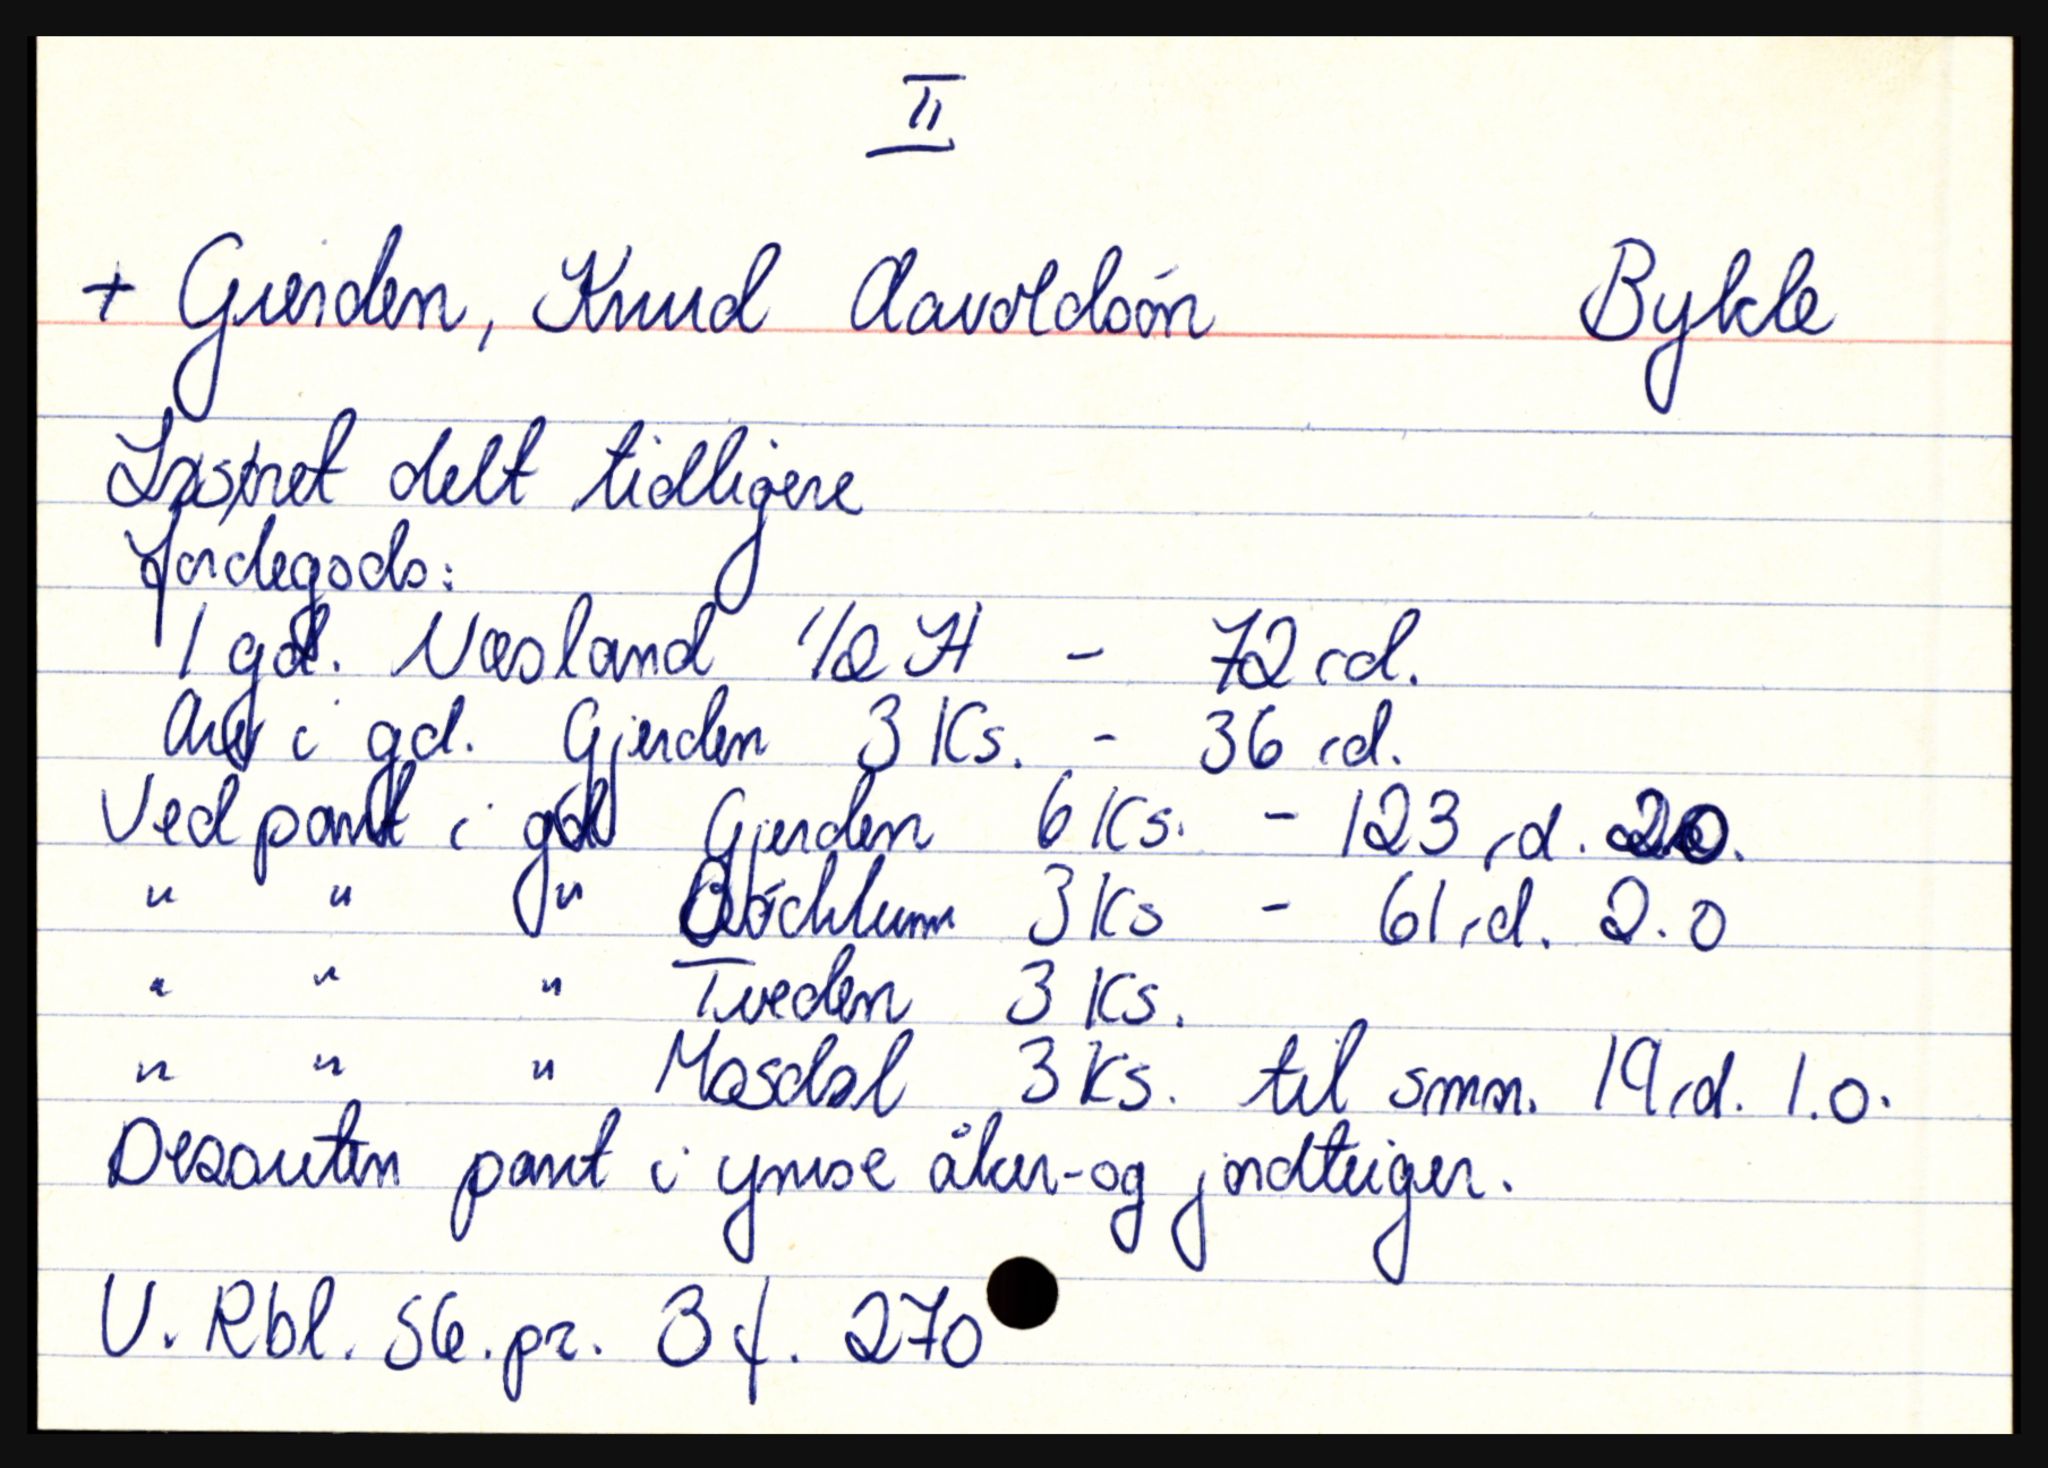 II
+ Gierden, Knud Aavoldsön Bykle
Løsøret delt tidligere
Jordegods:
I gd. Næsland 1/2 H - 72 rd.
Arv i gd. Gjerden 3 Ks. - 36 rd.
Ved pant i gd Gjerden 6 Ks. - 123 rd. 2.0.
" " " 3 Ks - 61 rd. 2.0
" " " Tveden 3 Ks.
" " " Mosdøl 3 Ks. til smn. 19 rd. 1.0.
Desouten pant i ymse åker-og jordteiger.
V. Rbl. S6. pr. 3 f. 270